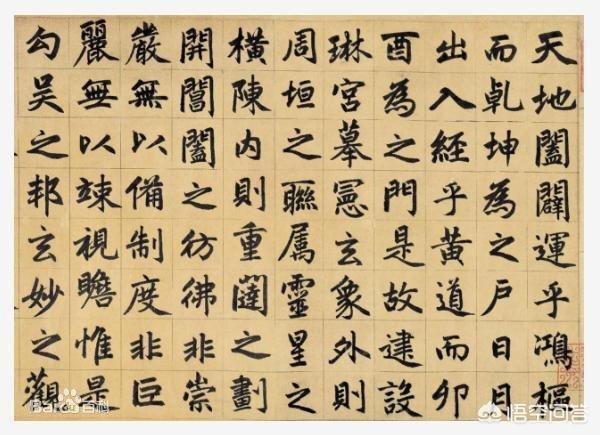 天地闔闢運乎鴻樞
而乹坤為之戶日月
出入經乎黃道而卯
酉為之門是故建設
琳宮摹憲玄象外則
周垣之聯屬靈星之
橫陳內則重闥之劃
開閶闔之彷彿非崇
嚴無以備制度非巨
麗無以竦視瞻惟是
勾吳之邦玄妙之觀
Baidu百科
悟空问答